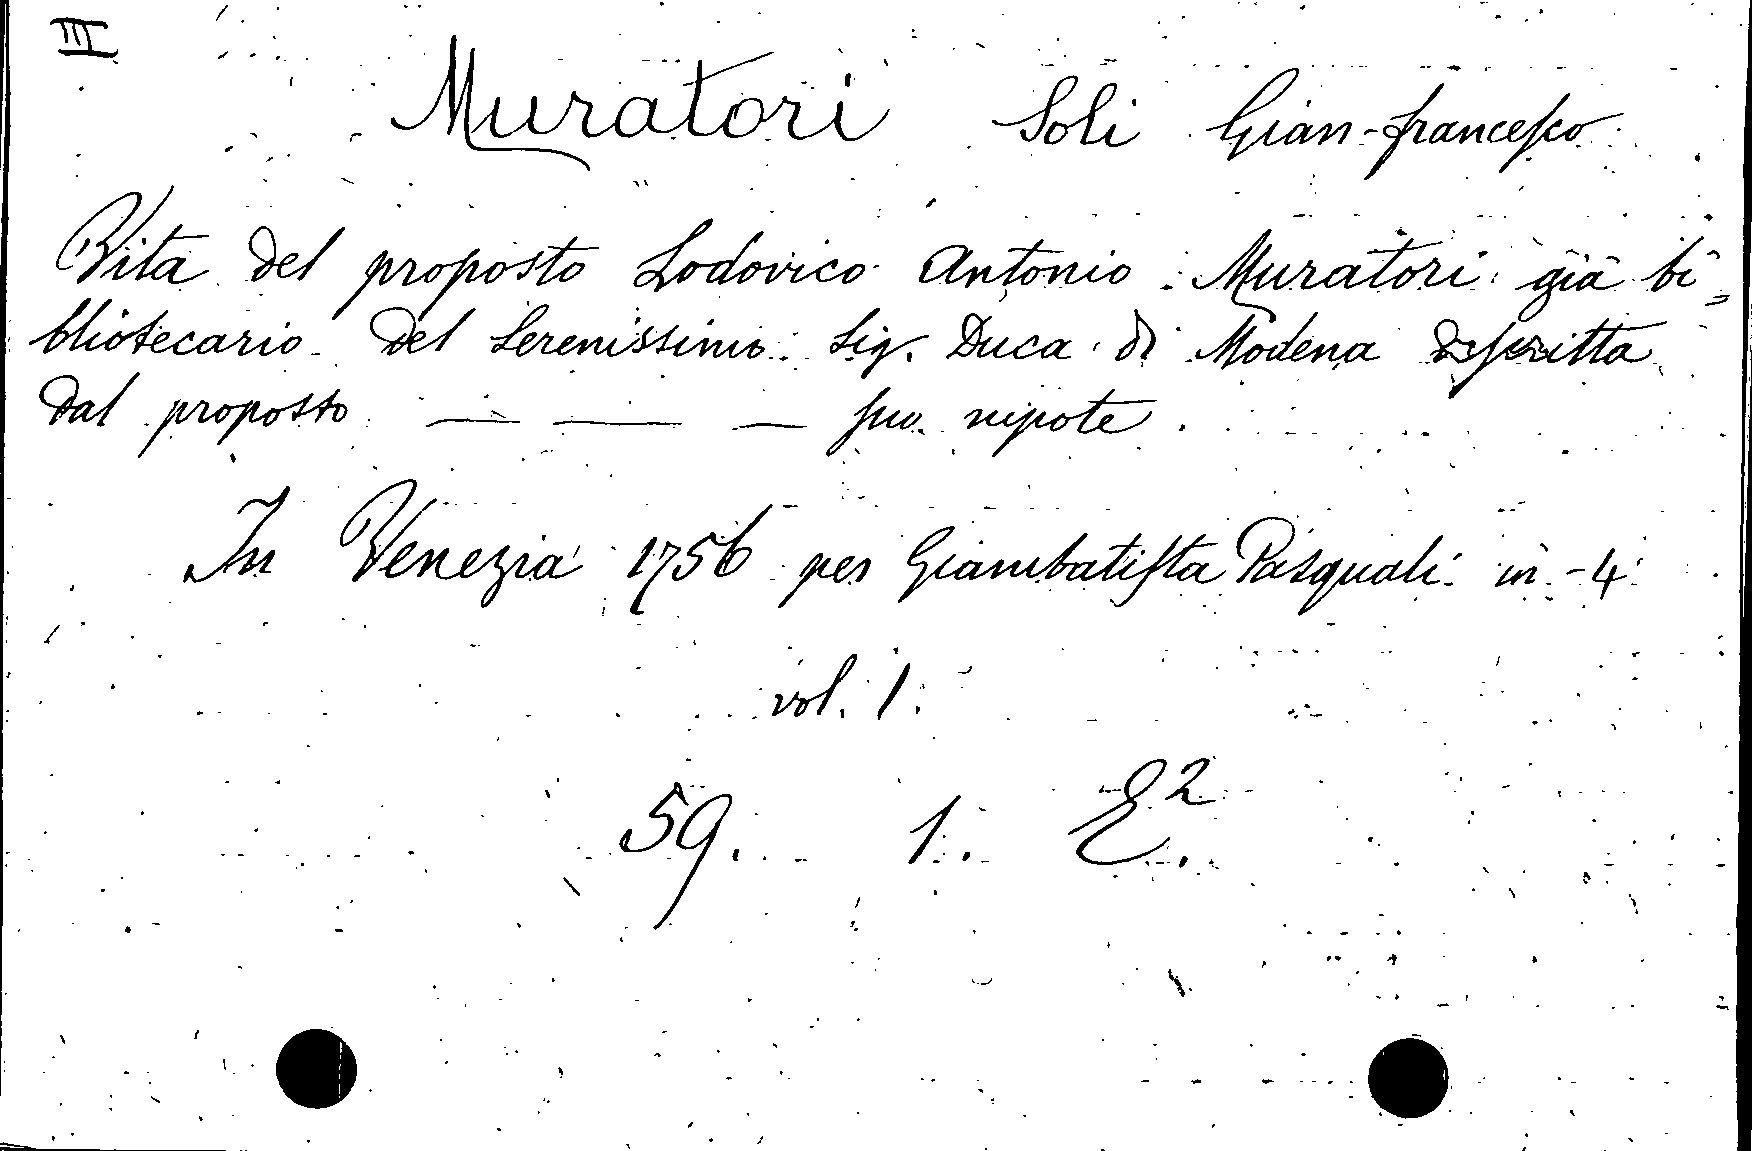 III
Muratori Soli Gian-francesco
Vita del proposto Lodovico Antonio Muratori già bi=
bliotecario del Serenissimo Sig. Duca di Modena descritta
dal proposto — — — suo nipote.
In Venezia 1756 per Giambatista Pasquali in-4
vol. 1.
59. 1. E².